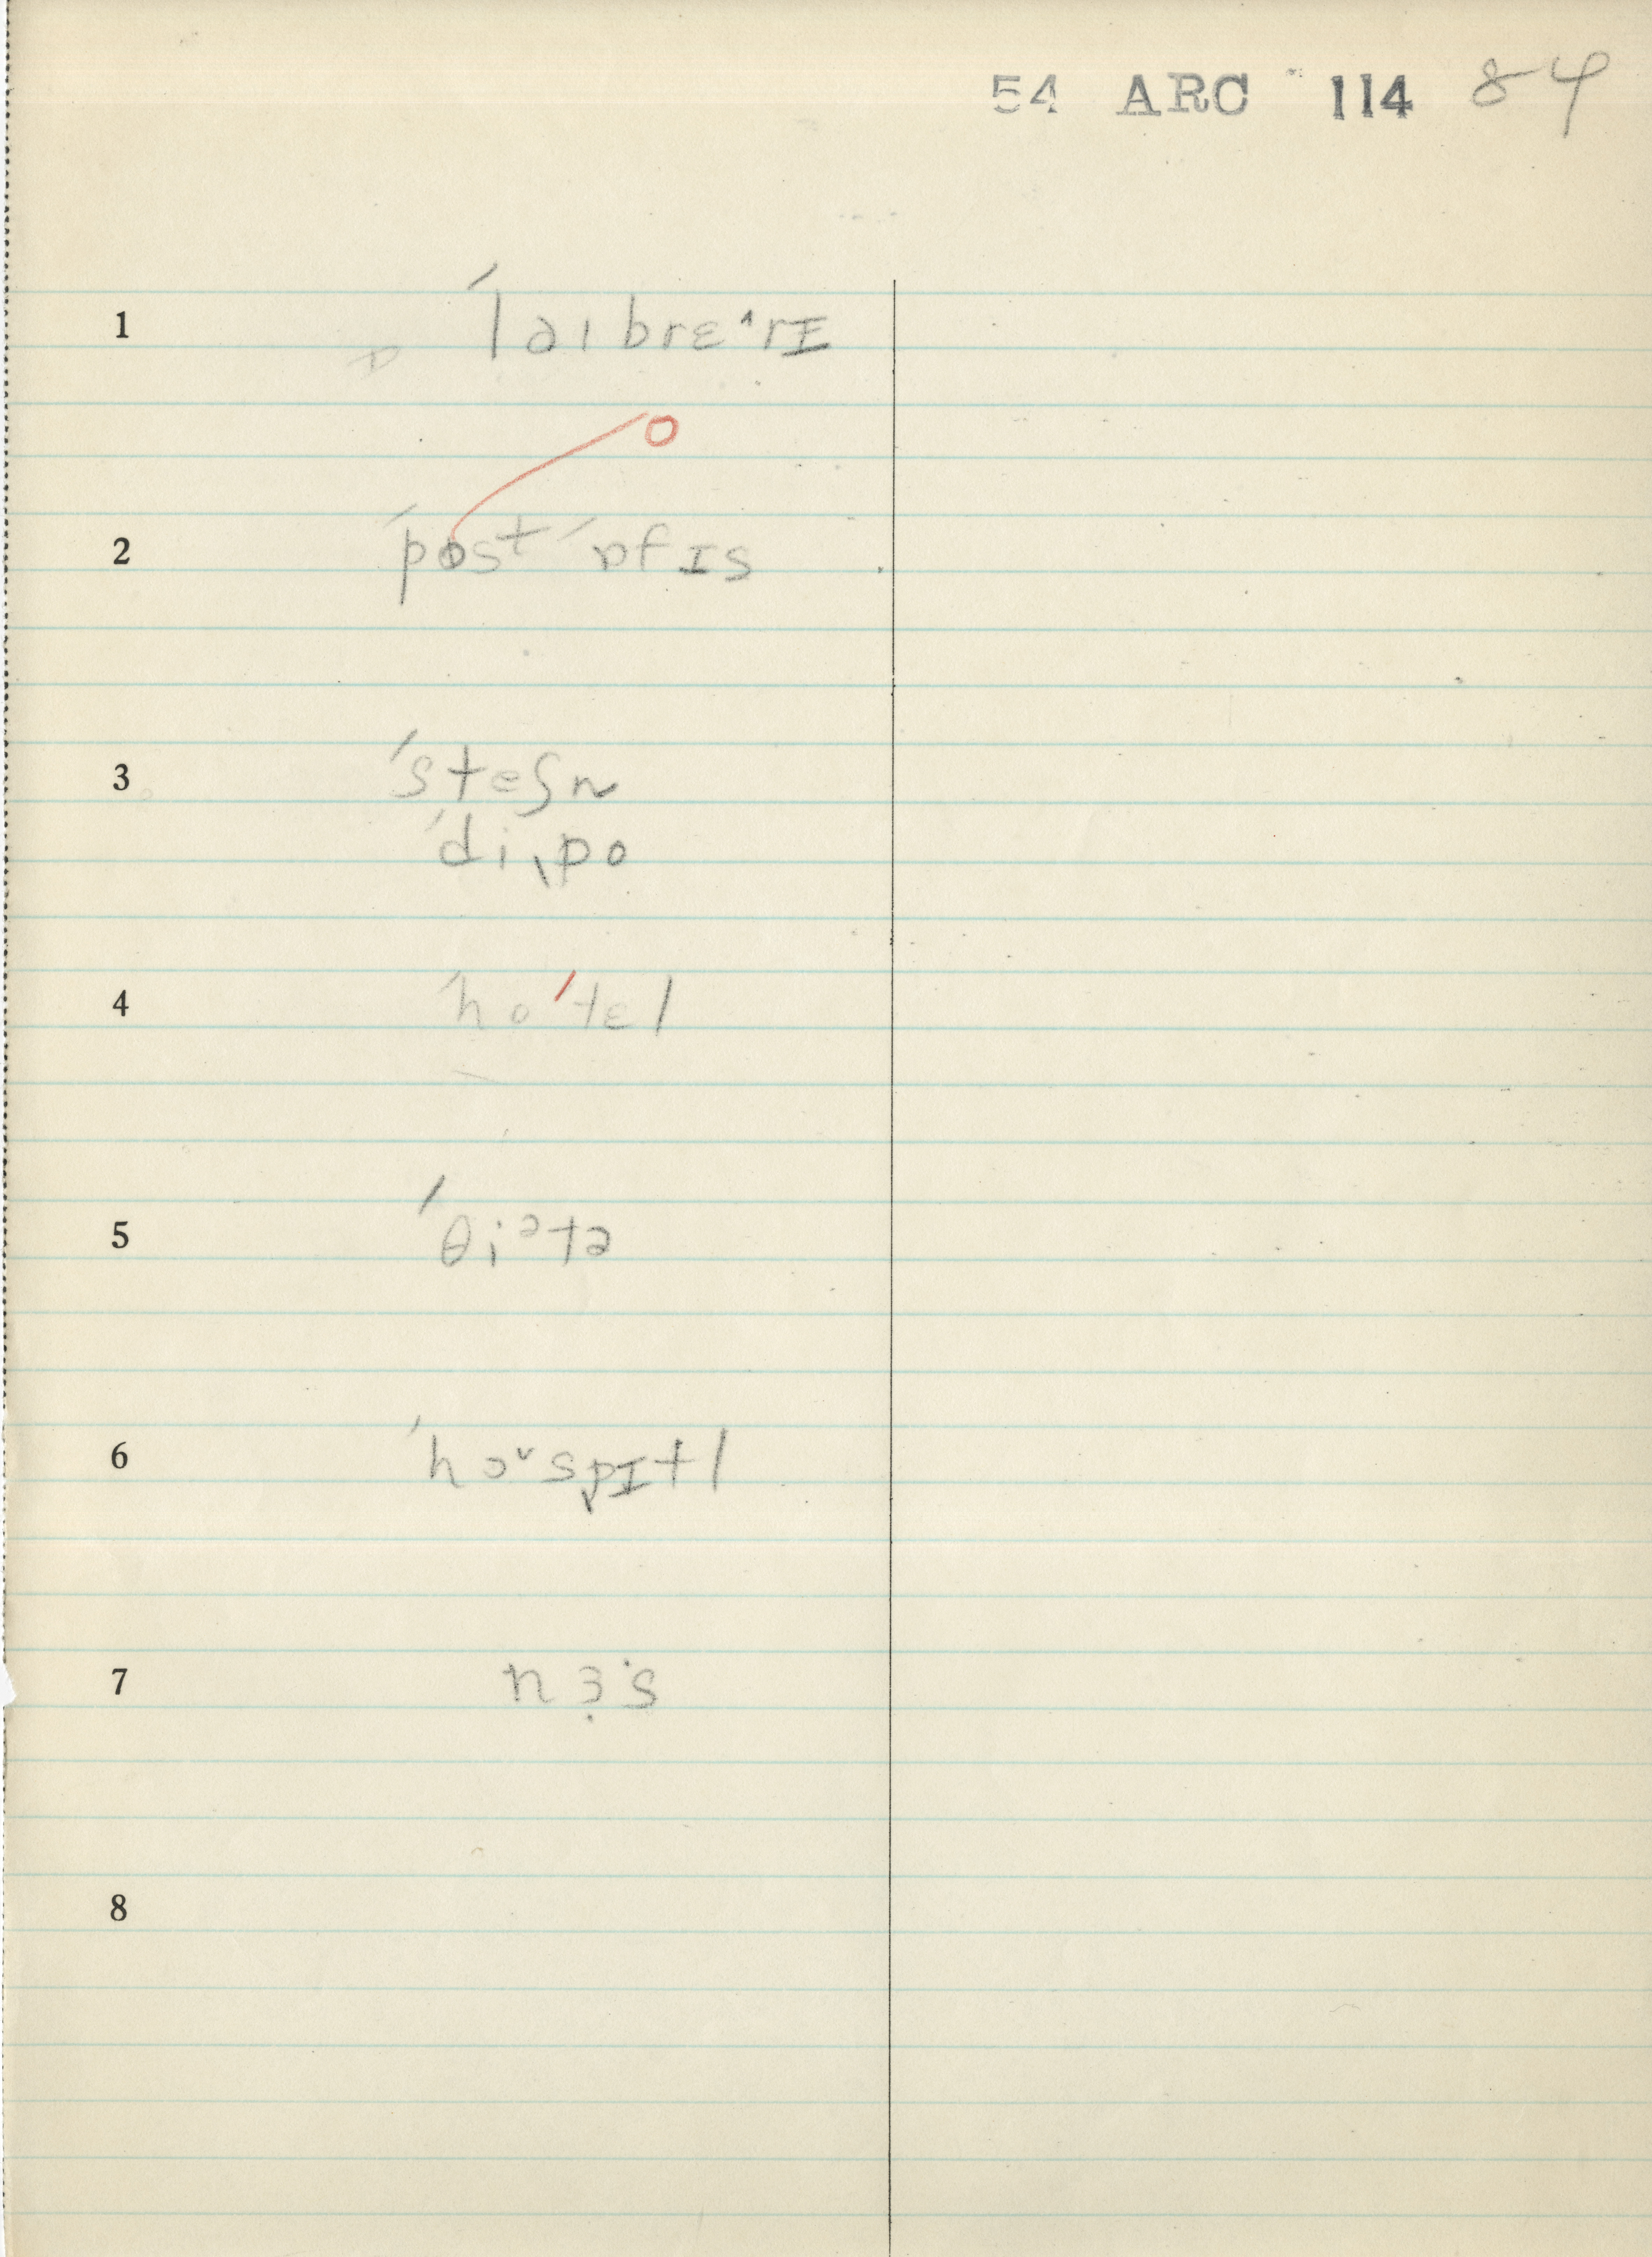 54 ARC 114 84
1 ˈlaɪbrɛ˄rɪ
o
2 ˈpost ˈɒfɪs
3 ˈsteʃn
ˈdiˌpo
4 ˈhoˈtɛl
5 ˈθiᵊtə
6 ˈhɔ˅spɪtl
7 nɜ·s
8